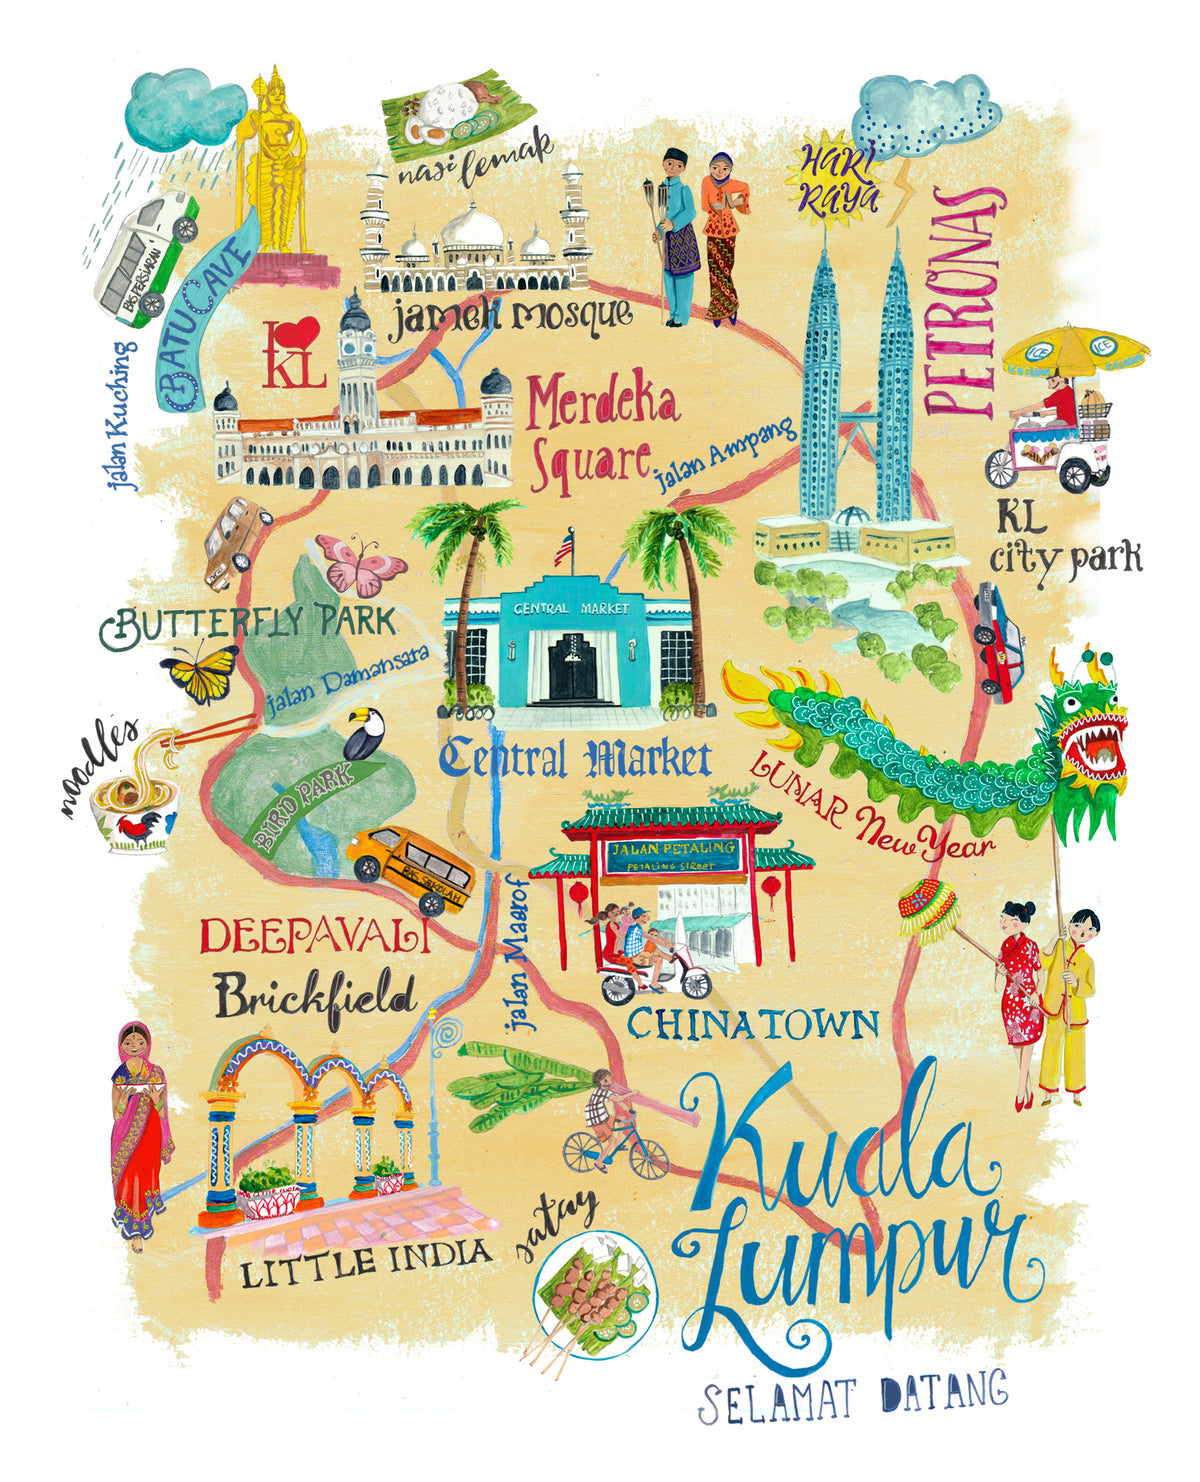 nasi lemak
HARI
RAYA
PETRONAS
BAS PERSIARAN
BATU CAVE
jamek mosque
I
KL
ICE
ICE
jalan Kuching
Merdeka
Square
jalan Ampang
KL
city park
CENTRAL MARKET
BUTTERFLY PARK
jalan Damansara
noodles
Central Market
LUNAR New Year
BIRD PARK
JALAN PETALING
PETALING STREET
BAS SEKOLAH
DEEPAVALI
jalan Maarof
Brickfield
CHINATOWN
Kuala
Lumpur
LITTLE INDIA
satay
SELAMAT DATANG